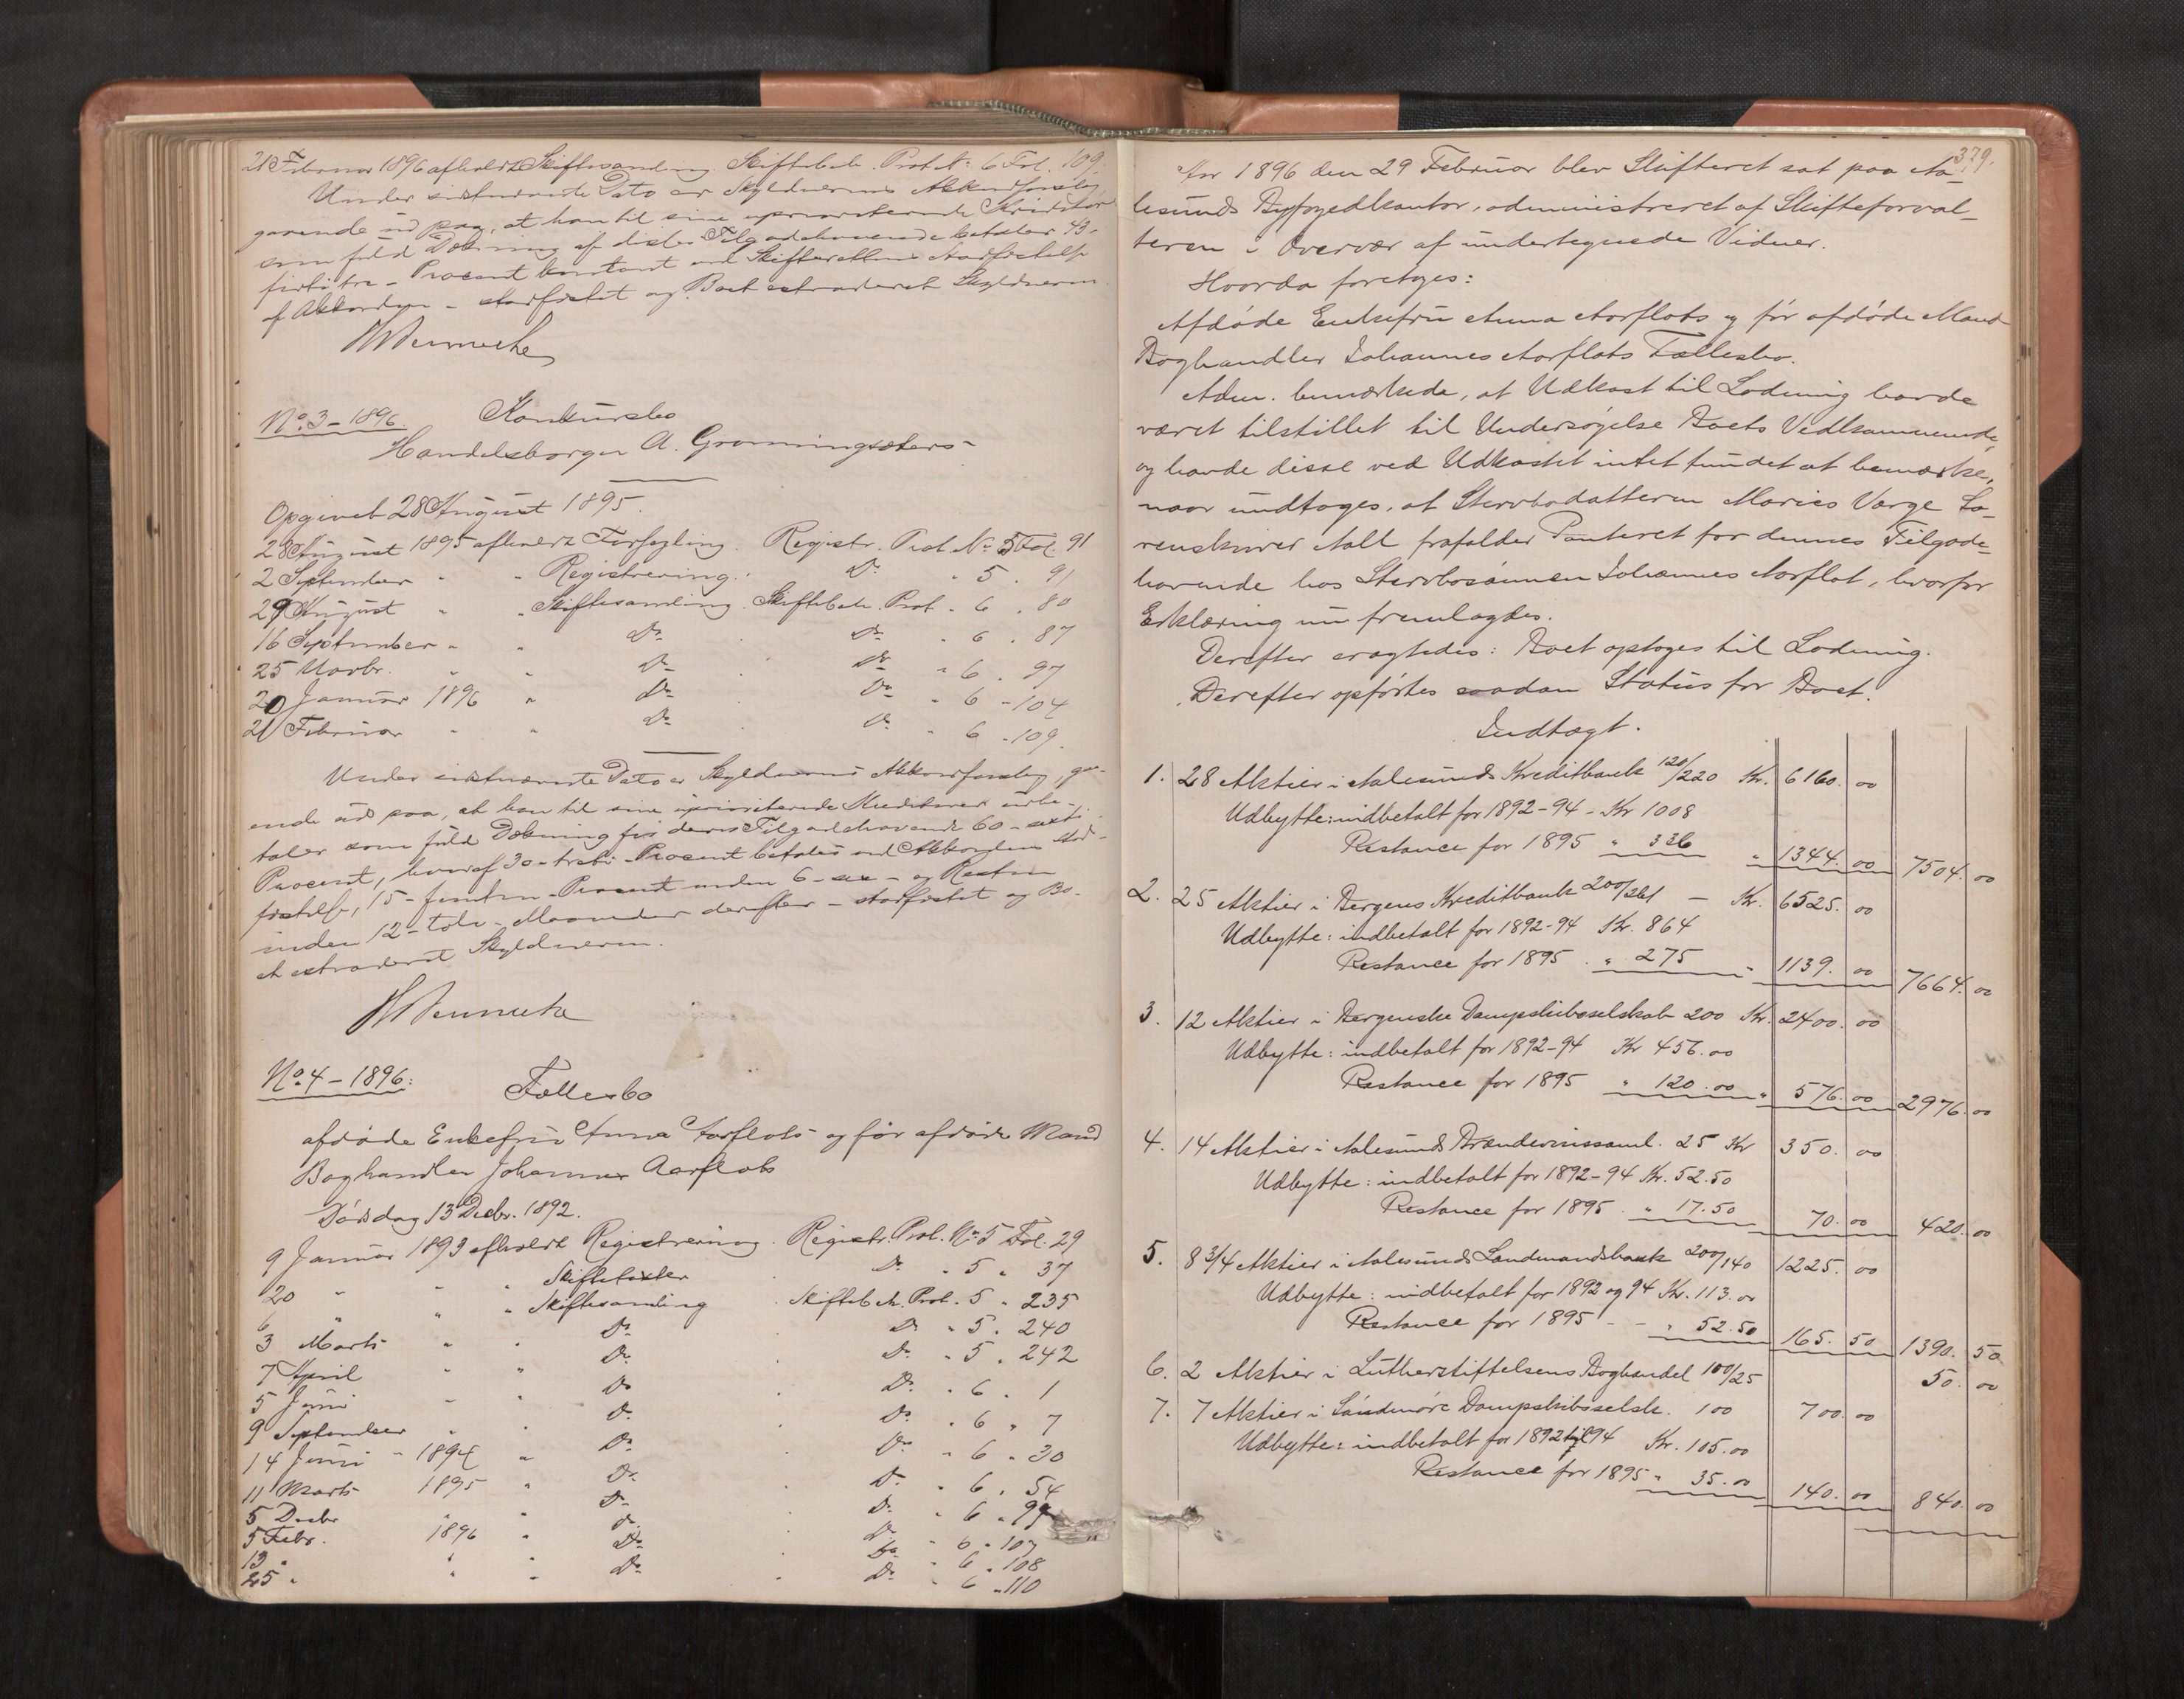 21 Februar 1896 afholdt Skiftesamling. Skiftebeh. Prot. No 6 Fol. 109.
Under sidstnævnte Dato er Skyldnerens Akkordforslag,
gaaende ud paa, at han til sine uprioriterende Kreditorer
som fuld Dækning af disses Tilgodehavende betaler 43-
firti tre - Procent kontant ved Skifterettens Stadfæstelse
af Akkorden - stadfæstet og Boet extraderet Skyldneren
No. 3 - 1896. Konkursbo
Handelsborger A. Grønningsæters
Opgivet 28 August 1895.
28 August 1895 afholdt Forsegling. Registr. Prot. No 5 Fol. 91
2 September " " Registrering. Do " 5 . 91
29 August " " Skiftesamling. Skiftebeh. Prot. " 6 . 80
16 September " " Do Do " 6 . 87
25 Novbr. " " Do Do " 6 . 97
20 Januar 1896 " Do Do " 6 " 104
21 Februar " " Do Do " 6 . 109.
Under sidstnævnte Dato er Skyldnerens Akkordforslag, gaa-
ende ud paa, at han til sine uprioriterede Kreditorer udbe-
taler som fuld Dækning for deres Tilgodehavende 60 - sexti
Procent, hvoraf 30 - treti - Procent betales ved Akkordens Stad-
fæstelse, 15 - femten - Procent inden 6 - sex - og Resten
inden 12 - tolv - Maaneder derefter - stadfæstet og Bo-
et extraderet Skyldneren.
No. 4 - 1896: Fællesbo
afdøde Enkefru Anna Aarflots og før afdøde Mand
Boghandler Johannes Aarflots
Dødsdag 13 Decbr. 1892.
9 Januar 1893 afholdt Registrering. Registr. Prot. No 5 Fol. 29
20 " " " Do " 5 " 37
6 " " " Skiftesamling Skiftebeh. Prot. 5 " 235
3 Marts " " Do Do " 5 . 240
7 April " " Do Do " 5 . 242
5 Juni " " Do Do " 6 . 1
9 September " " Do Do " 6 " 7
14 Juni " 1894 " Do Do " 6 " 30
11 Marts 1895 " Do Do " 6 . 54
5 Decbr " " Do Do " 6 " 99
5 Febr. 1896 " Do Do " 6 " 107
13 " " " Do Do " 6 " 108
25 " " " Do Do " 6 " 110
379.
Aar 1896 den 29 Februar blev Skifteret sat paa Aa-
lesunds Byfogedkontor, administreret af Skifteforval-
teren i Overvær af undertegnede Vidner.
Hvorda foretoges:
Afdøde Enkefru Anna Aarflots og før afdøde Mand
Boghandler Johannes Aarflots Fællesbo.
Adm. bemærkede, at Udkast til Lodning havde
været tilstillet til Undersøgelse Boets Vedkommende,
og havde disse ved Udkastet intet fundet at bemærke,
naar undtages, at Stervbodatteren Maries Værge La-
renskriver Aall frafalder Panteret for dennes Tilgode-
havende hos Stervbosønnen Johannes Aarflot, hvorfor
Erklæring nu fremlagdes.
Derefter eragtedes: Boet optoges til Lodning.
Derefter opførtes saadan Status for Boet.
Indtægt.
1. 28 Aktier i Aalesunds Kreditbank 120/220 Kr. 6160. 00
Udbytte: indbetalt for 1892-94 - Kr 1008
Restance for 1895 " 336 " 1344. 00 7504. 00
2. 25 Aktier i Bergens Kreditbank 200/261 - Kr. 6525. 00
Udbytte: indbetalt for 1892-94 Kr. 864
Restance for 1895 . " 275 " 1139. 00 7664. 00
3. 12 Aktier i Bergenske Dampskibsselskab 200 Kr. 2400. 00
Udbytte: indbetalt for 1892-94 Kr 456.00
Restance for 1895 " 120.00 " 576. 00 2976. 00
4. 14 Aktier i Aalesunds Brændevinssaml. 25 Kr 350. 00
Udbytte: indbetalt for 1892-94 Kr. 52.50
Restance for 1895 . " 17.50 70. 00 420. 00
5. 8 3/4 Aktier i Aalesunds Landmandsbank 200/140 1225. 00
Udbytte: indbetalt for 1892 og 94 Kr. 113.00
Restance for 1895 - - " 52.50 165. 50 1390. 50
6. 2 Aktier i Lutherstiftelsens Boghandel 100/25 50. 00
7. 7 Aktier i Søndmøre Dampskibsselsk. 100 700. 00
Udbytte: indbetalt for 1892 til 94 Kr. 105.00
Restance for 1895 " 35.00 140. 00 840. 00